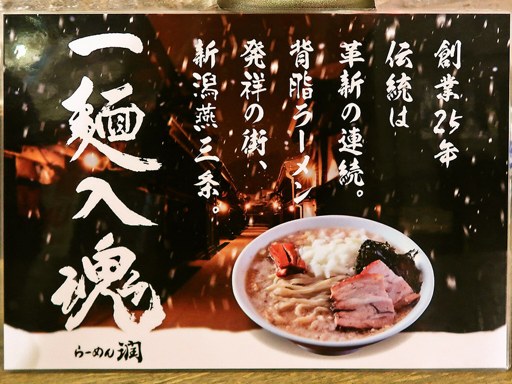 創業25年
伝統は
革新の連続。
背脂ラーメン
発祥の街、
新潟燕三条。
一麺入魂
らーめん 潤